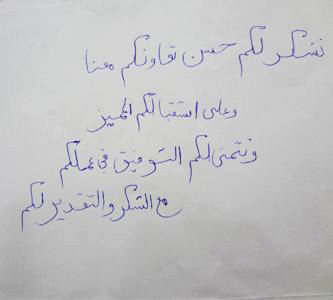 نشكر لكم حسن تعاونكم معنا
وعلى استقبالكم المميز
ونتمنى لكم التوفيق في عملكم
مع الشكر والتقدير لكم